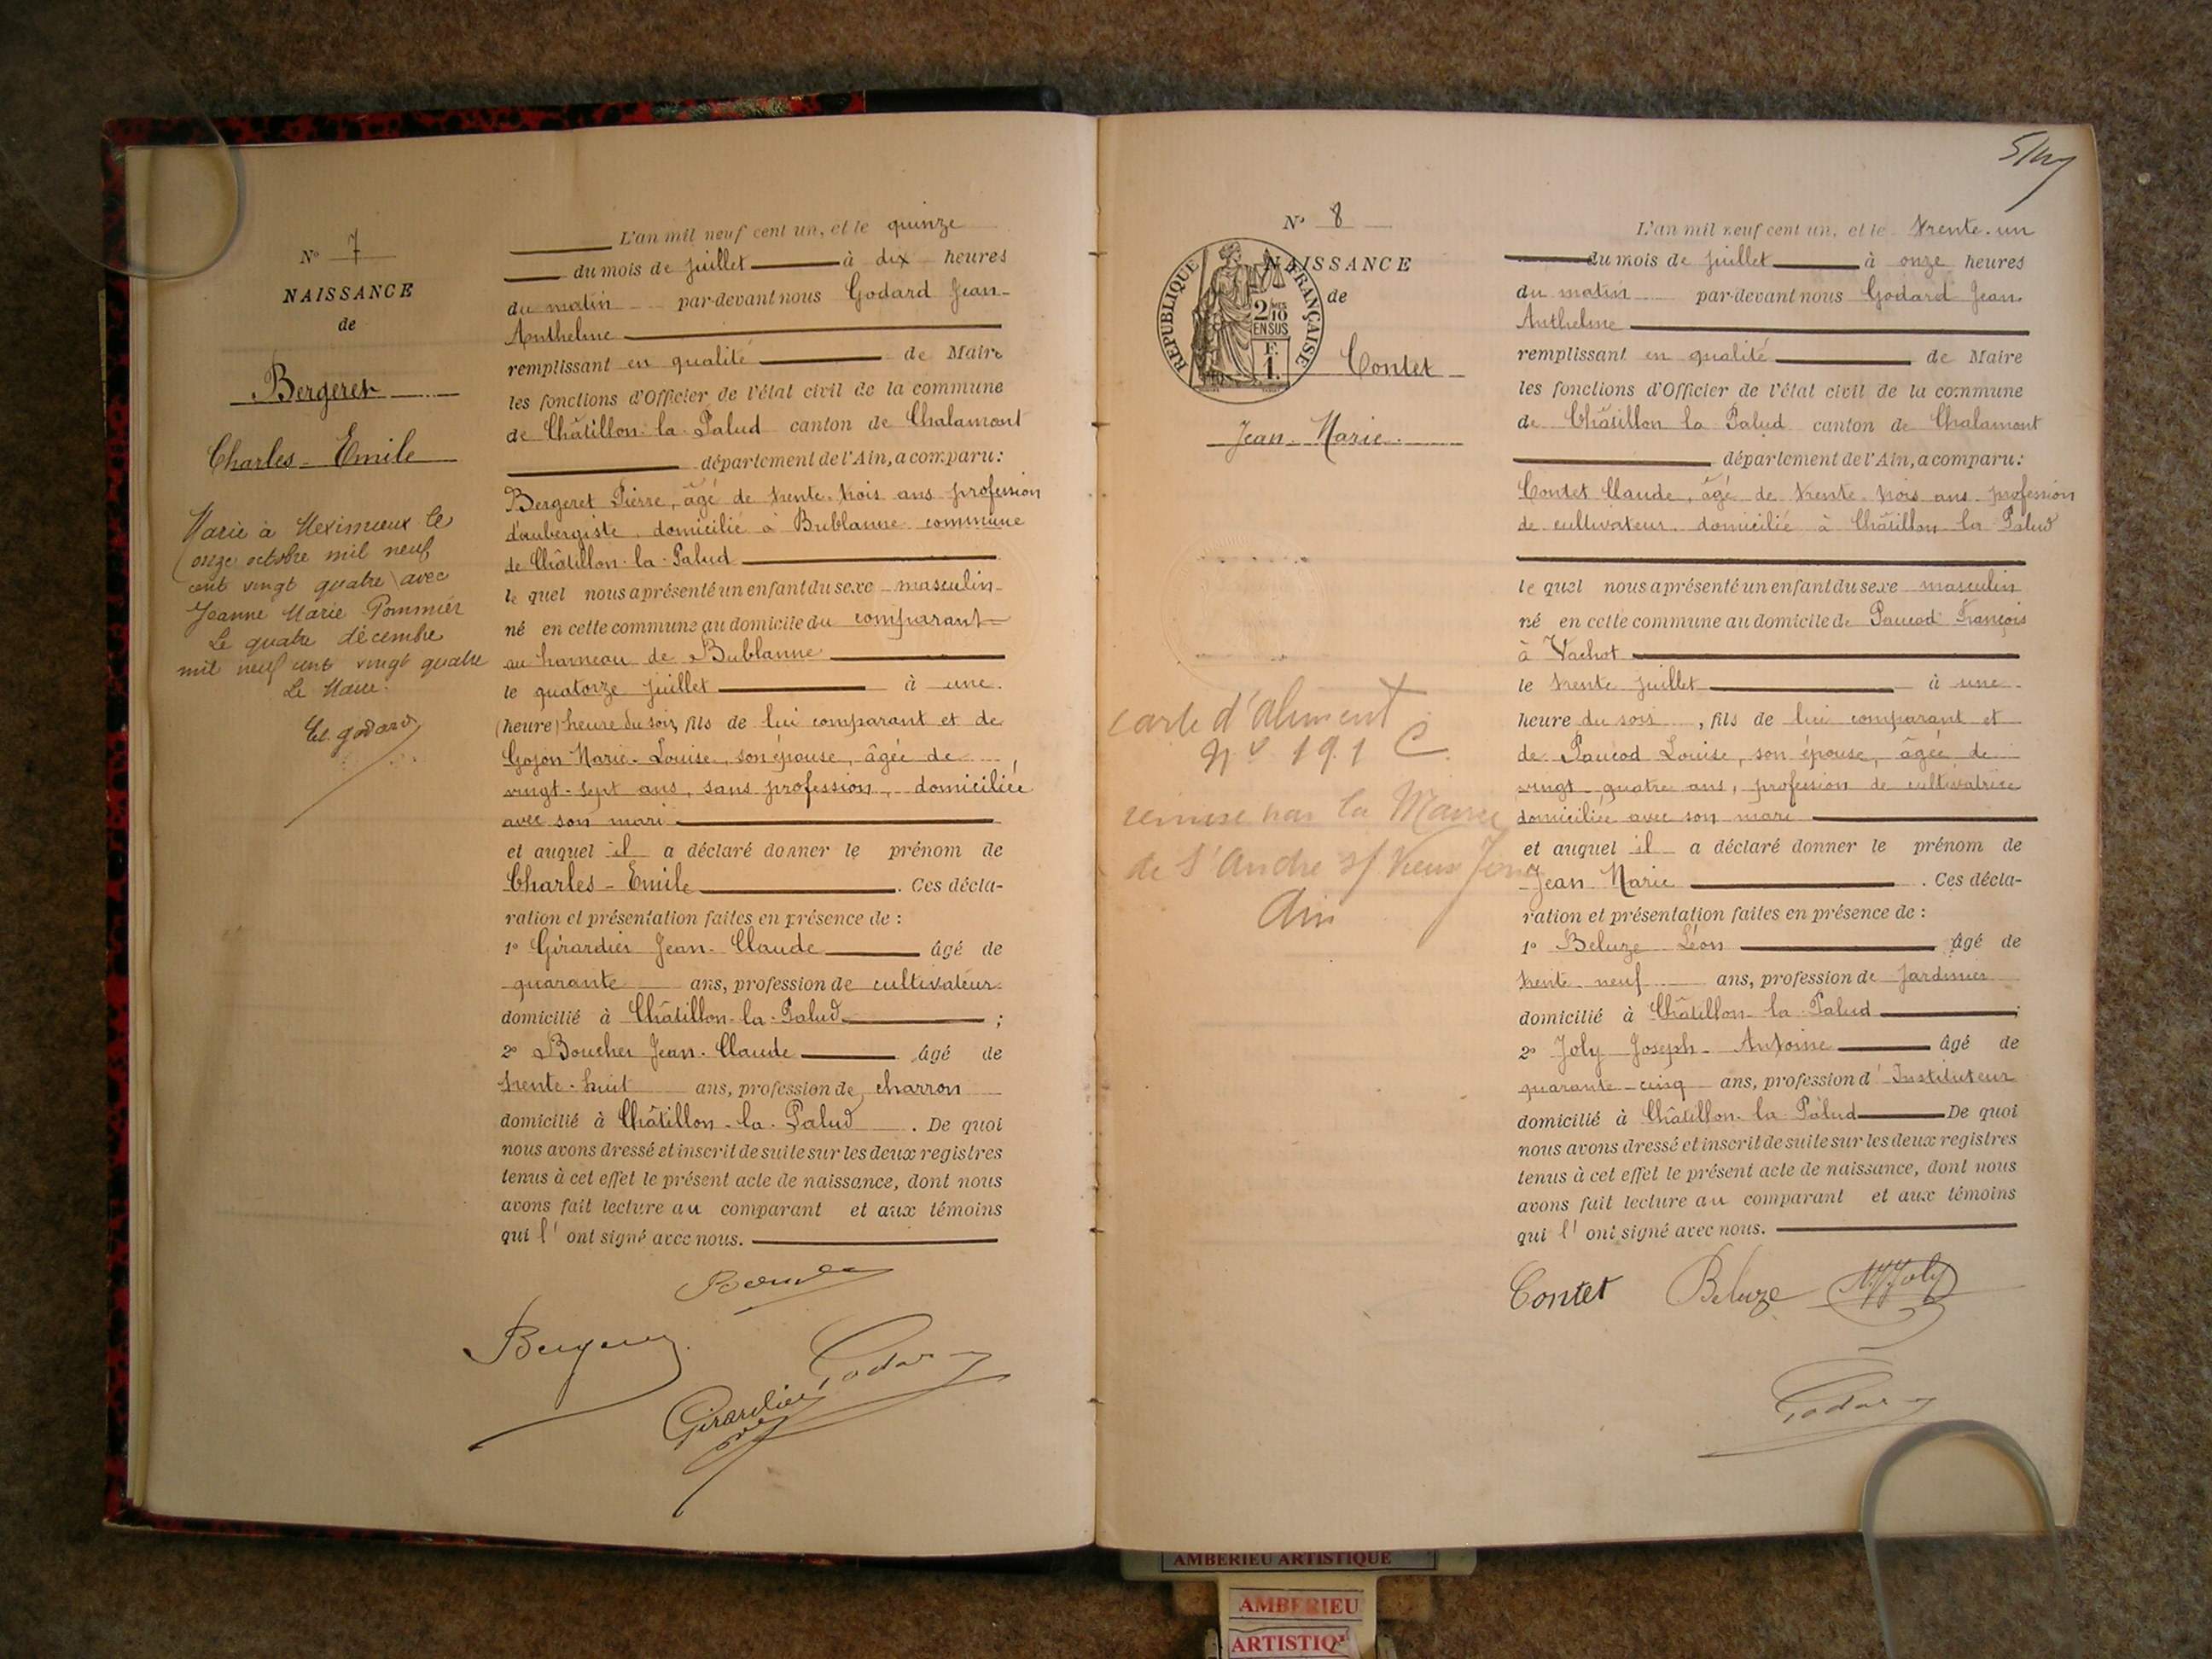 N° 7
NAISSANCE
de
Bergeret
Charles-Emile
Marié à Meximieux le
onze octobre mil neuf
cent vingt quatre avec
Jeanne Marie Pommier
Le quatre décembre
mil neuf cent vingt quatre
Le Maire.
godard
L'an mil neuf cent un, et le quinze
du mois de juillet à dix heures
du matin par-devant nous Godard Jean-
Anthelme
remplissant en qualité de Maire
les fonctions d'Officier de l'état civil de la commune
de Châtillon-la-Palud canton de Chalamont
département de l'Ain, a comparu:
Bergeret Pierre, âgé de trente-trois ans profession
d'aubergiste, domicilié à Bublanne commune
de Châtillon-la-Palud
le quel nous a présenté un enfant du sexe masculin
né en cette commune au domicile du comparant
au hameau de Bublanne
le quatorze juillet à une
(heure) heure du soir, fils de lui comparant et de
Gojon Marie-Louise, son épouse, âgée de
vingt-sept ans, sans profession, domiciliée
avec son mari
et auquel il a déclaré donner le prénom de
Charles-Emile. Ces décla-
ration et présentation faites en présence de :
1° Girardier Jean-Claude âgé de
quarante ans, profession de cultivateur
domicilié à Châtillon-la-Palud ;
2° Boucher Jean-Claude âgé de
trente-huit ans, profession de charron
domicilié à Châtillon-la-Palud. De quoi
nous avons dressé et inscrit de suite sur les deux registres
tenus à cet effet le présent acte de naissance, dont nous
avons fait lecture au comparant et aux témoins
qui l'ont signé avec nous.
Bergeret
Godard
Girardier
5
N° 8
NAISSANCE
de
RÉPUBLIQUE FRANÇAISE
2/10
EN SUS
F.
1.
Contet
Jean-Marie.
carte d'aliment
N° 191 C
remise par la Mairie
de S'Andre s/ Vieux Jonc
Ain
L'an mil neuf cent un, et le trente-un
du mois de juillet à onze heures
du matin par-devant nous Godard Jean
Anthelme
remplissant en qualité de Maire
les fonctions d'Officier de l'état civil de la commune
de Châtillon la Palud canton de Chalamont
département de l'Ain, a comparu:
Contet Claude, âgé de trente-trois ans profession
de cultivateur domicilié à Châtillon la Palud
le quel nous a présenté un enfant du sexe masculin
né en cette commune au domicile de Paucod François
à Vachot
le trente juillet à une
heure du soir, fils de lui comparant et
de Paucod Louise, son épouse, âgée de
vingt-quatre ans, profession de cultivatrice
domiciliée avec son mari
et auquel il a déclaré donner le prénom de
Jean Marie. Ces décla-
ration et présentation faites en présence de :
1° Beluze Léon âgé de
trente neuf ans, profession de jardinier
domicilié à Châtillon-la-Palud ;
2° Joly Joseph-Antoine âgé de
quarante-cinq ans, profession d'Instituteur
domicilié à Châtillon-la-Palud De quoi
nous avons dressé et inscrit de suite sur les deux registres
tenus à cet effet le présent acte de naissance, dont nous
avons fait lecture au comparant et aux témoins
qui l'ont signé avec nous.
Contet Beluze Joly
Godard
AMBERIEU ARTISTIQUE
AMBERIEU
ARTISTIQ